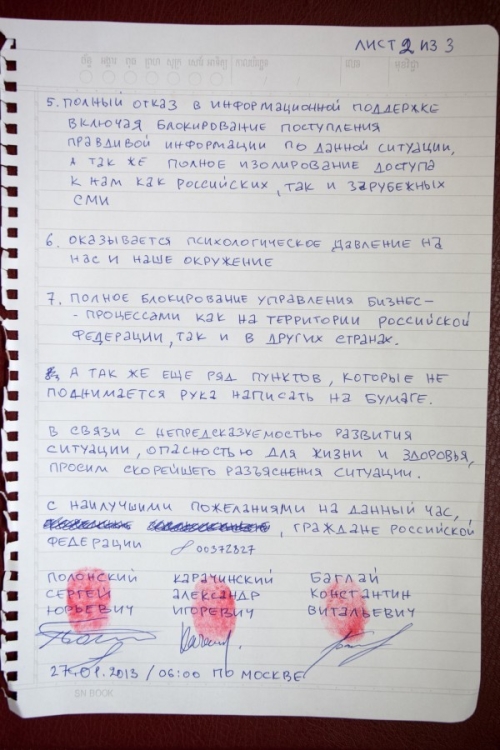 ЛИСТ 2 ИЗ 3
5. ПОЛНЫЙ ОТКАЗ В ИНФОРМАЦИОННОЙ ПОДДЕРЖКЕ
ВКЛЮЧАЯ БЛОКИРОВАНИЕ ПОСТУПЛЕНИЯ
ПРАВДИВОЙ ИНФОРМАЦИИ ПО ДАННОЙ СИТУАЦИИ,
А ТАК ЖЕ ПОЛНОЕ ИЗОЛИРОВАНИЕ ДОСТУПА
К НАМ КАК РОССИЙСКИХ, ТАК И ЗАРУБЕЖНЫХ
СМИ
6. ОКАЗЫВАЕТСЯ ПСИХОЛОГИЧЕСКОЕ ДАВЛЕНИЕ НА
НАС И НАШЕ ОКРУЖЕНИЕ
7. ПОЛНОЕ БЛОКИРОВАНИЕ УПРАВЛЕНИЯ БИЗНЕС-
- ПРОЦЕССАМИ КАК НА ТЕРРИТОРИИ РОССИЙСКОЙ
ФЕДЕРАЦИИ, ТАК И В ДРУГИХ СТРАНАХ.
А ТАК ЖЕ ЕЩЕ РЯД ПУНКТОВ, КОТОРЫЕ НЕ
ПОДНИМАЕТСЯ РУКА НАПИСАТЬ НА БУМАГЕ.
В СВЯЗИ С НЕПРЕДСКАЗУЕМОСТЬЮ РАЗВИТИЯ
СИТУАЦИИ, ОПАСНОСТЬЮ ДЛЯ ЖИЗНИ И ЗДОРОВЬЯ,
ПРОСИМ СКОРЕЙШЕГО РАЗЪЯСНЕНИЯ СИТУАЦИИ.
С НАИЛУЧШИМИ ПОЖЕЛАНИЯМИ НА ДАННЫЙ ЧАС,
, ГРАЖДАНЕ РОССИЙСКОЙ
ФЕДЕРАЦИИ 00372827
ПОЛОНСКИЙ КАРАЧИНСКИЙ БАГЛАЙ
СЕРГЕЙ АЛЕКСАНДР КОНСТАНТИН
ЮРЬЕВИЧ ИГОРЕВИЧ ВИТАЛЬЕВИЧ
27.01.2013 / 06:00 ПО МОСКВЕ
SN BOOK